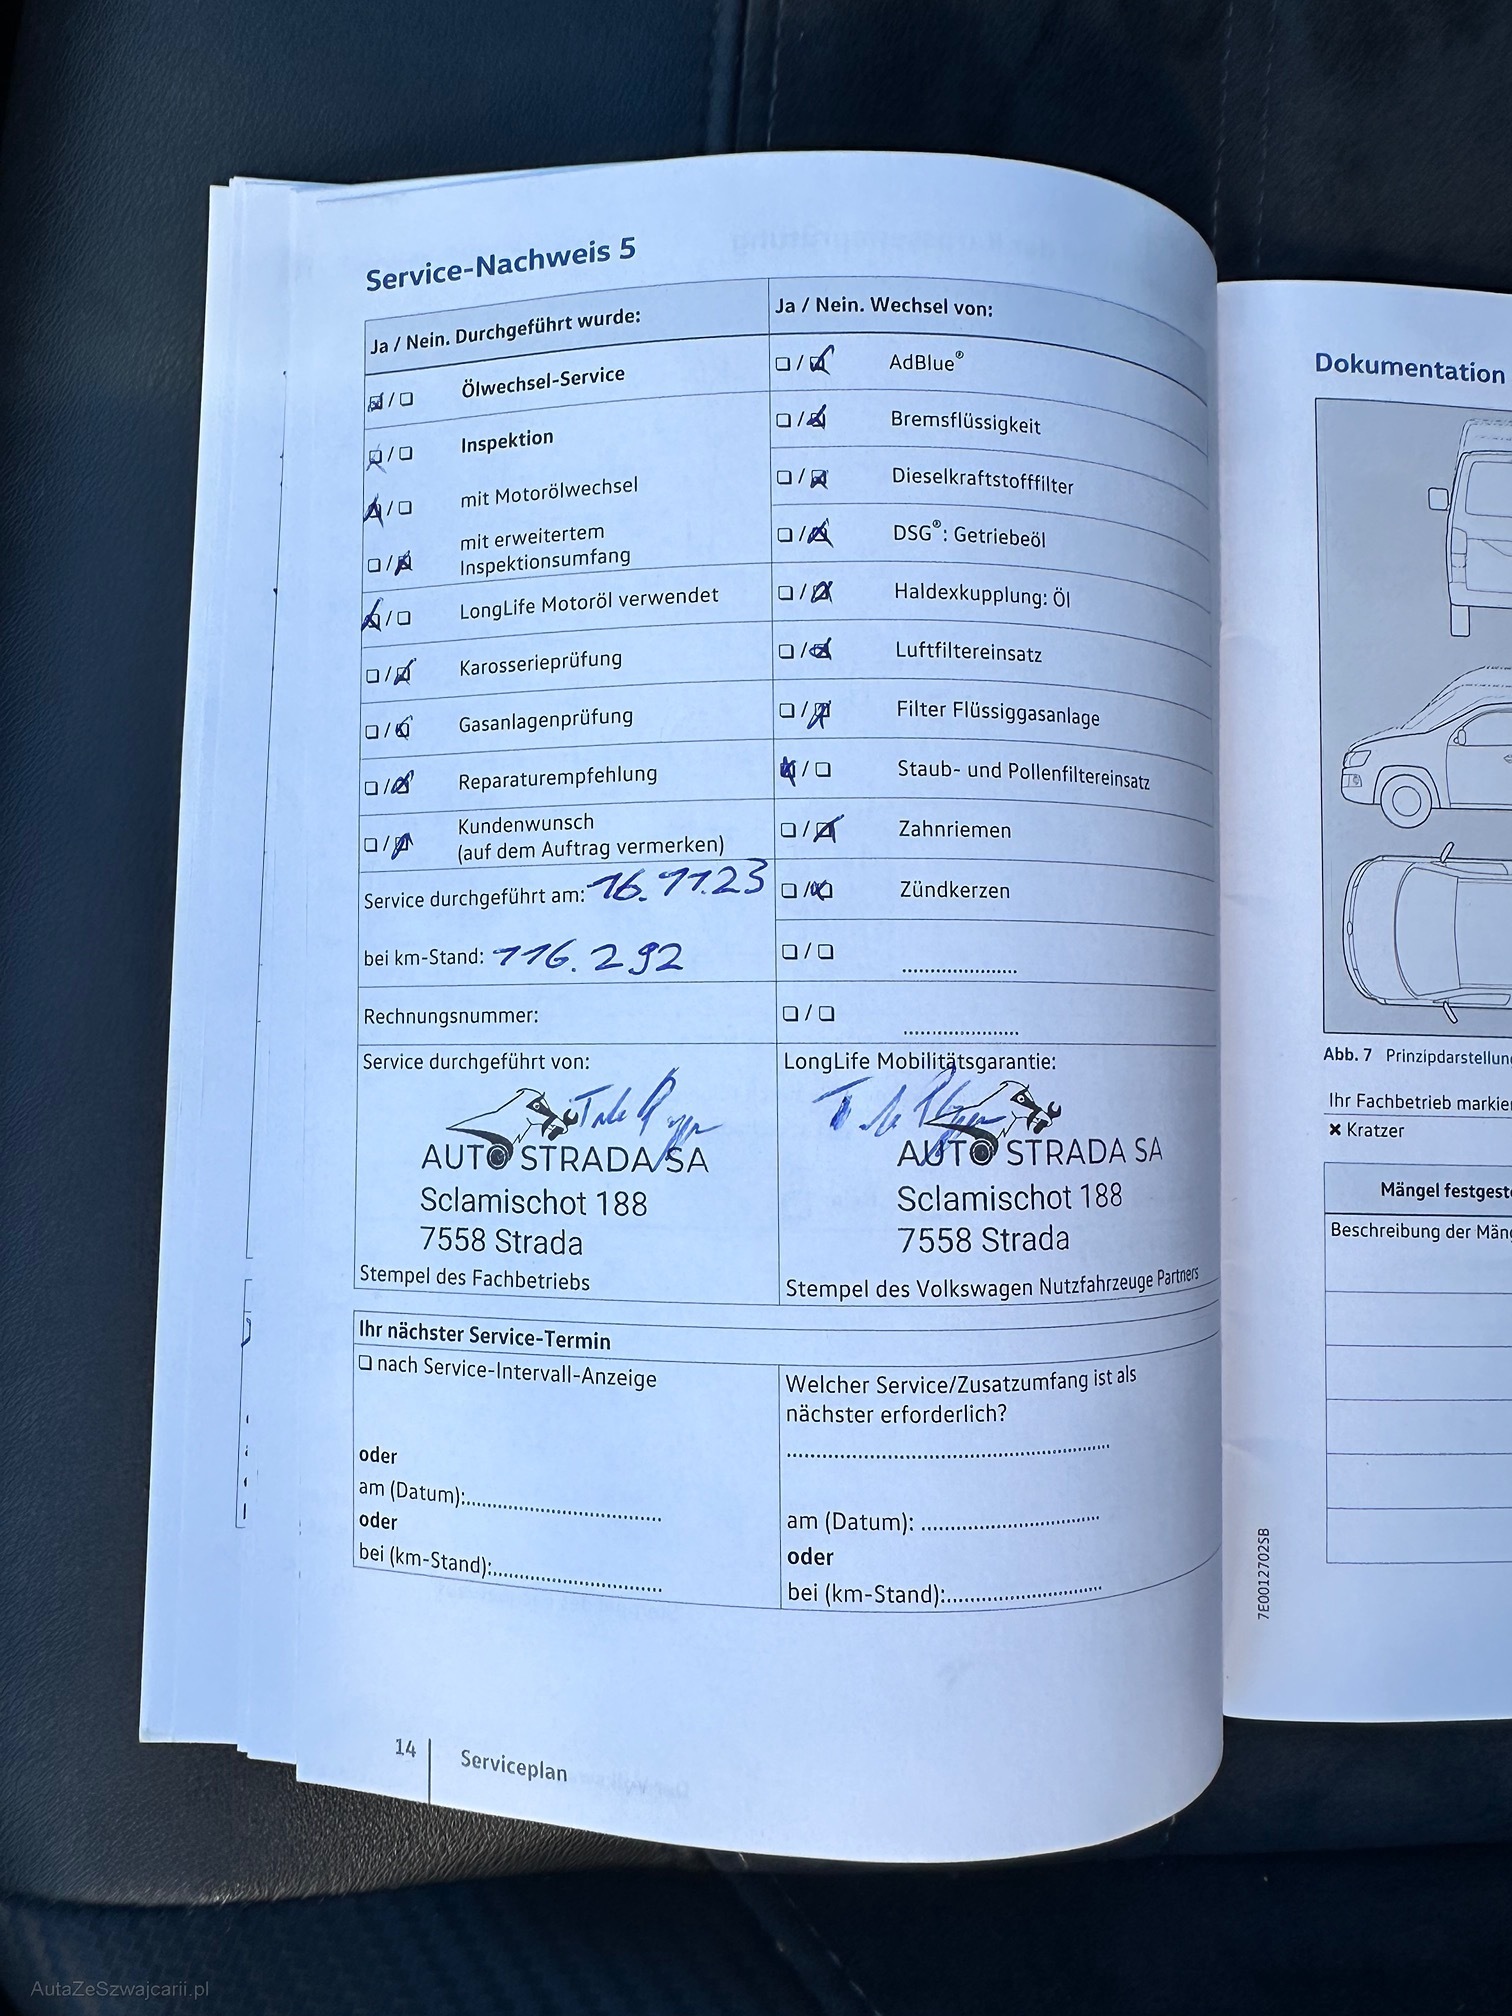 Service-Nachweis 5
Ja / Nein. Durchgeführt wurde:
Ölwechsel-Service
Inspektion
mit Motorölwechsel
mit erweitertem
Inspektionsumfang
LongLife Motoröl verwendet
Karosserieprüfung
Gasanlagenprüfung
Reparaturempfehlung
Kundenwunsch
(auf dem Auftrag vermerken)
Service durchgeführt am: 16.11.23
bei km-Stand: 116.292
Rechnungsnummer:
Service durchgeführt von:
AUTO STRADA SA
Sclamischot 188
7558 Strada
Stempel des Fachbetriebs
Ja / Nein. Wechsel von:
AdBlue®
Bremsflüssigkeit
Dieselkraftstofffilter
DSG®: Getriebeöl
Haldexkupplung: Öl
Luftfiltereinsatz
Filter Flüssiggasanlage
Staub- und Pollenfiltereinsatz
Zahnriemen
Zündkerzen
LongLife Mobilitätsgarantie:
AUTO STRADA SA
Sclamischot 188
7558 Strada
Stempel des Volkswagen Nutzfahrzeuge Partners
Ihr nächster Service-Termin
nach Service-Intervall-Anzeige
oder
am (Datum):
oder
bei (km-Stand):
Welcher Service/Zusatzumfang ist als
nächster erforderlich?
am (Datum):
oder
bei (km-Stand):
14
Serviceplan
Dokumentation
Abb. 7 Prinzipdarstellun
Ihr Fachbetrieb markie
× Kratzer
Mängel festgest
Beschreibung der Män
7E0012702SB
AutaZeSzwajcarii.pl